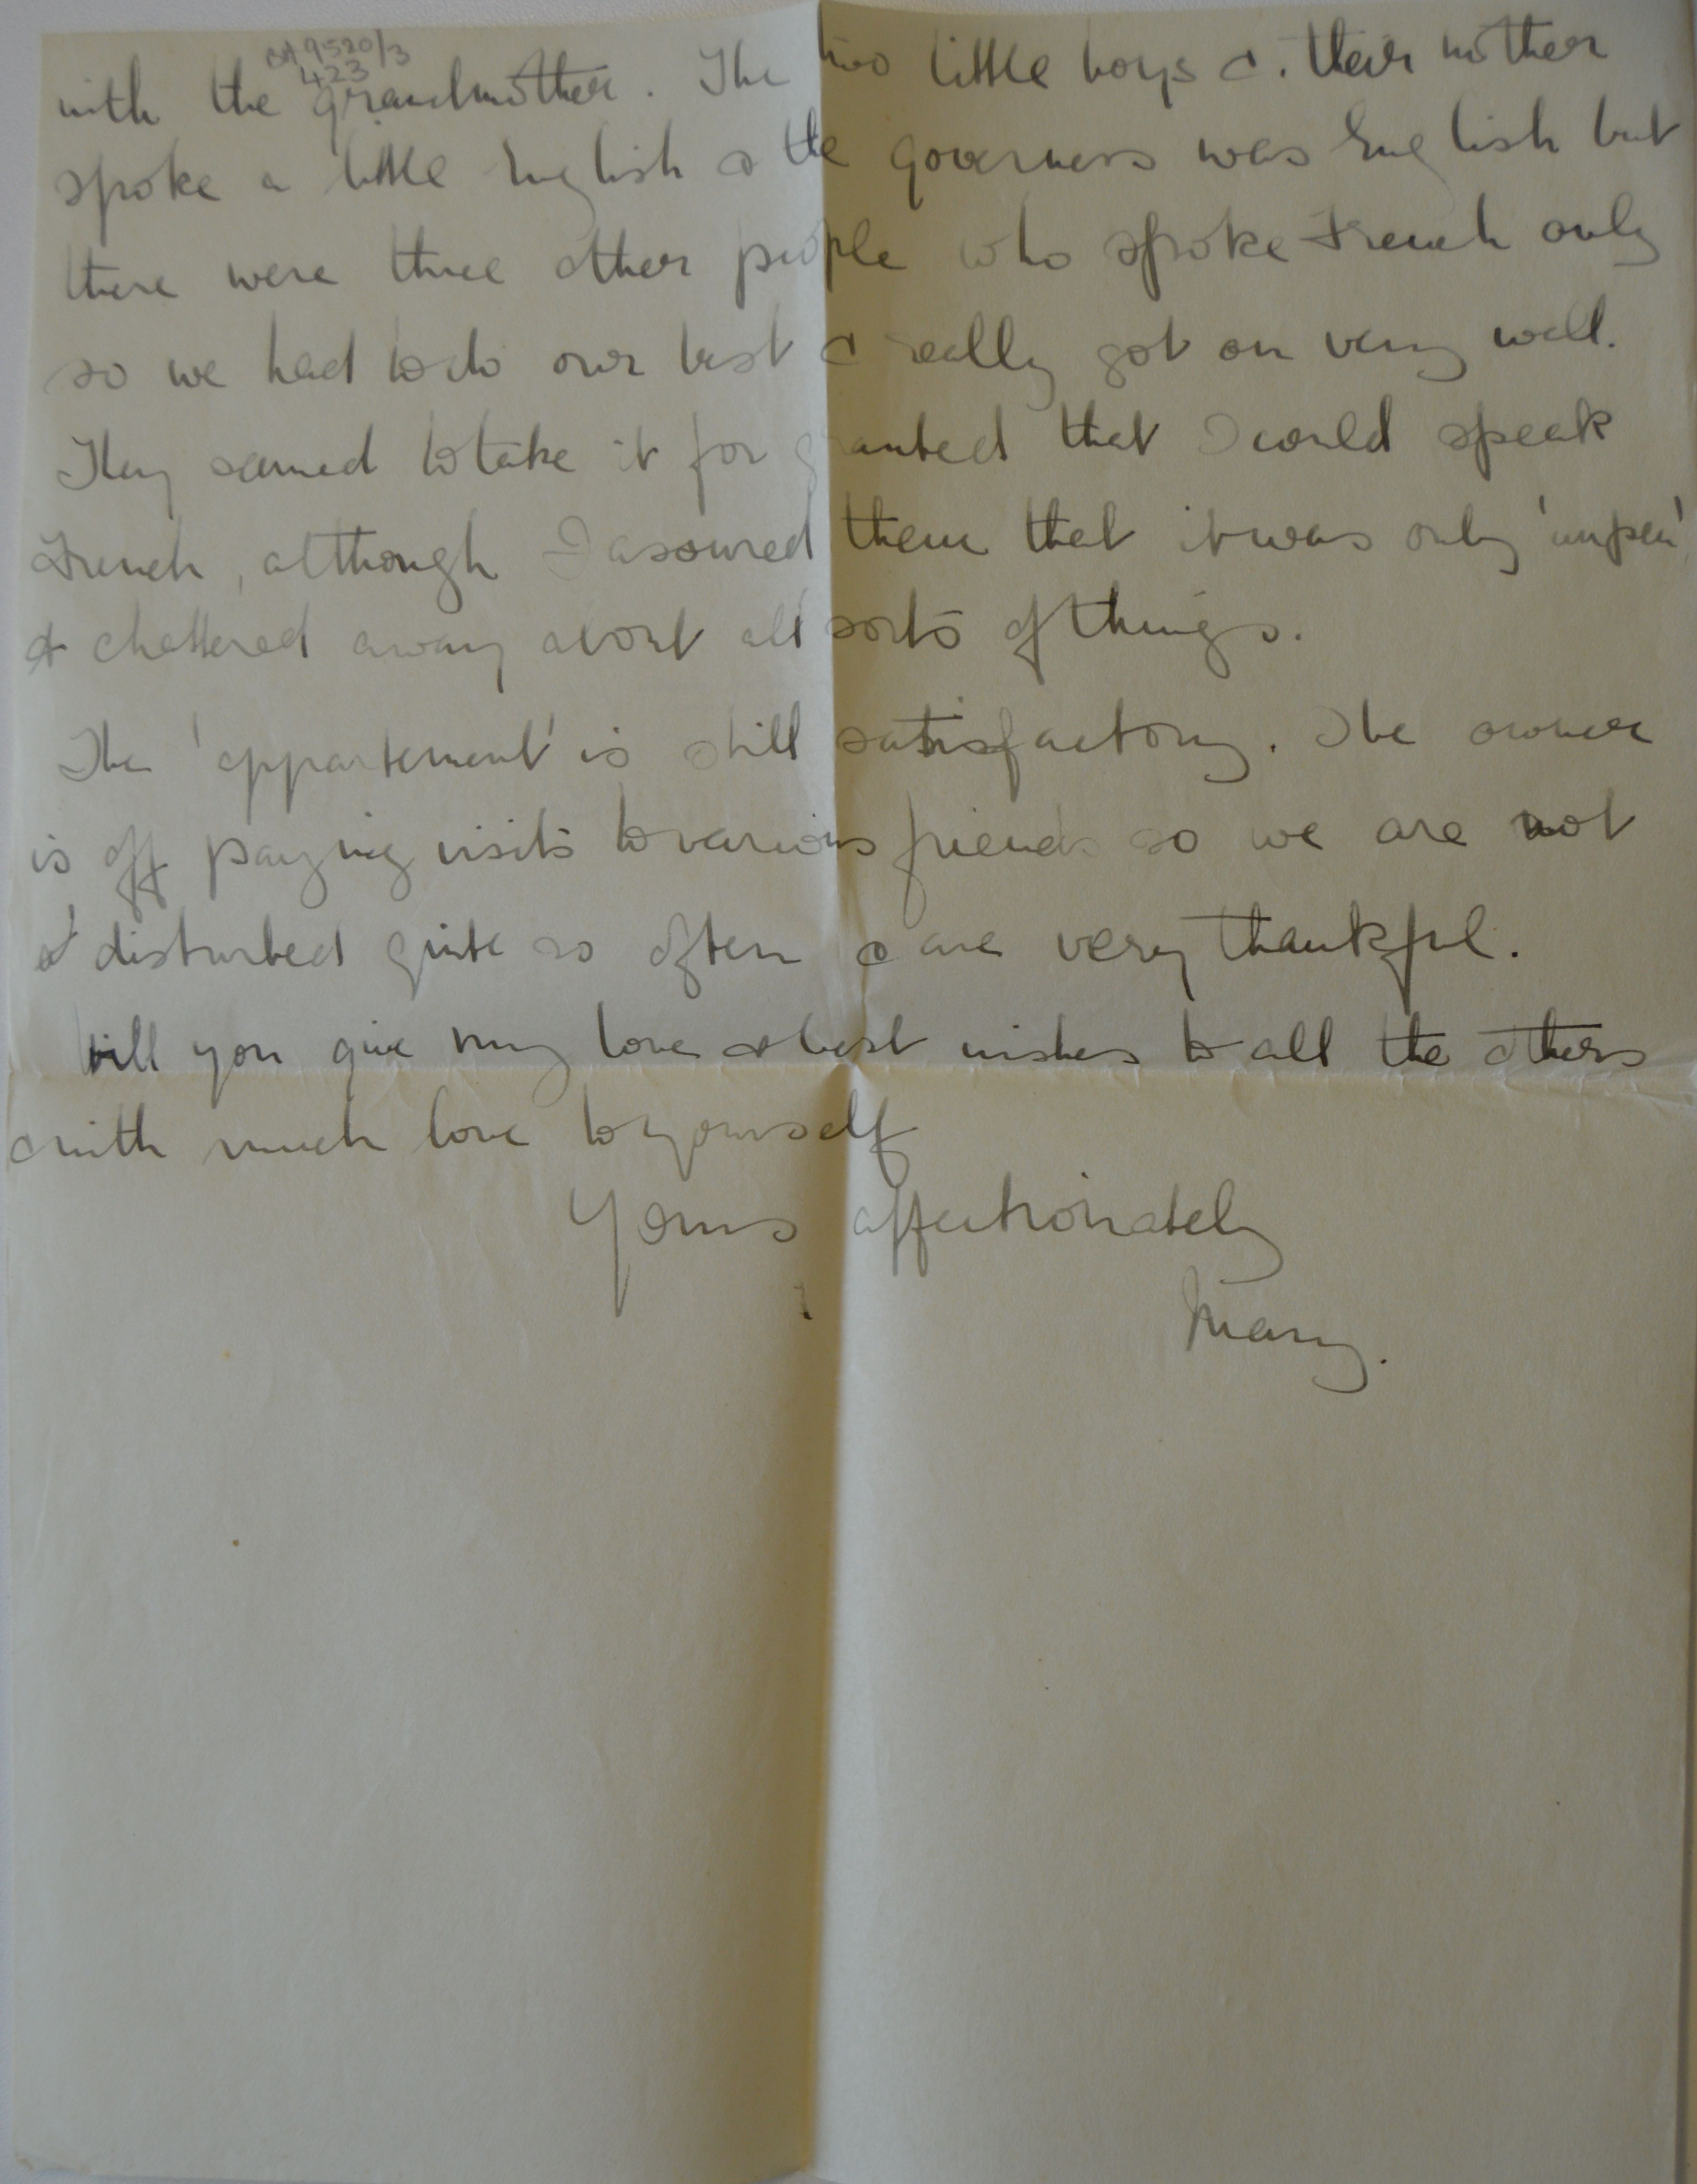 BA 9520/3
423
with the grandmother. The two little boys & their mother
spoke a little English & the governess was English but
there were three other people who spoke French only
so we had to do our best & really got on very well.
They seemed to take it for granted that I could speak
French, although I assured them that it was only 'un peu',
& chattered away about all sorts of things.
The 'appartement' is still satisfactory. The owner
is off paying visits to various friends so we are not
disturbed quite so often & are very thankful.
Will you give my love & best wishes to all the others
& with much love to yourself
Yours affectionately
Mary.